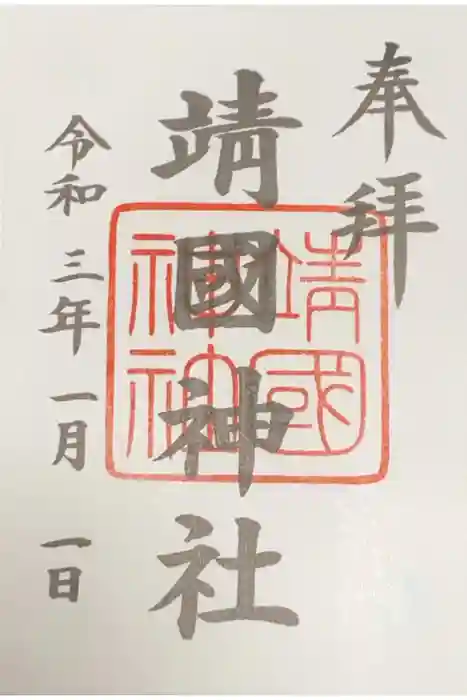 奉拝
靖國神社
靖國神社
令和三年一月一日